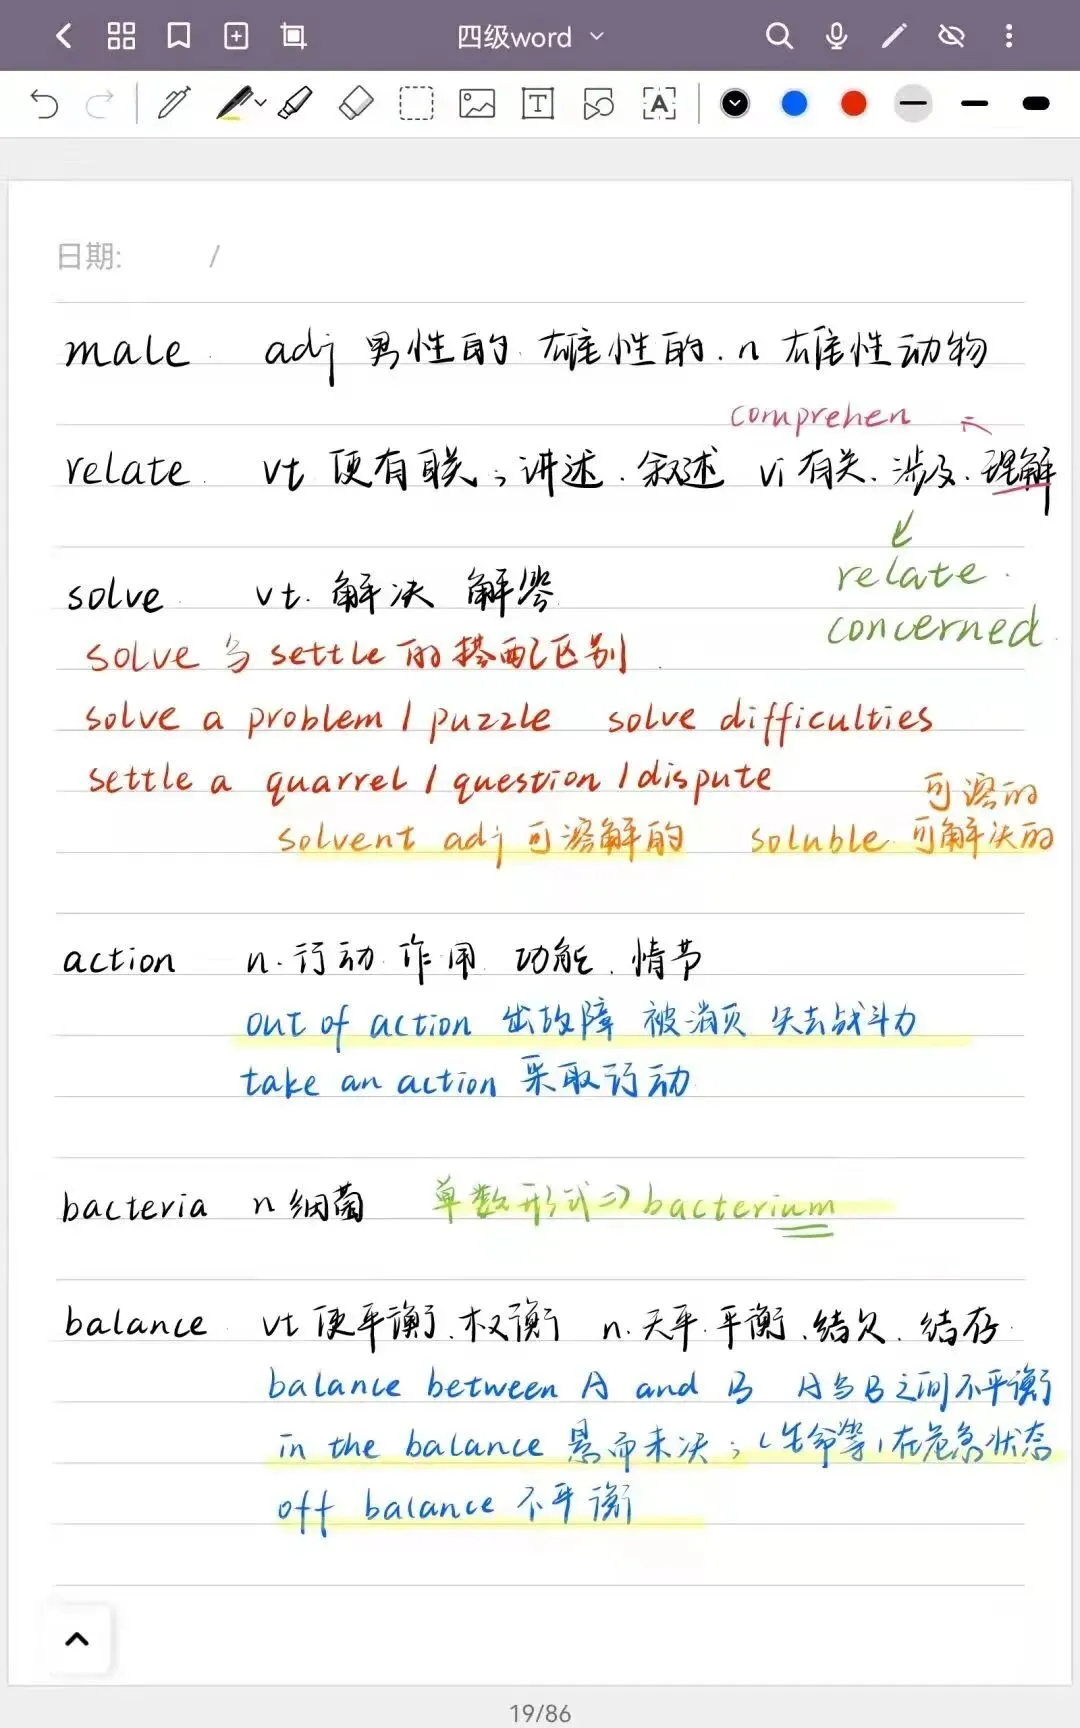 四级word
日期: /
male adj 男性的. 雄性的. n 雄性动物
comprehen ↖
relate. vt 使有联; 讲述. 叙述 vi 有关. 涉及. 理解
↙
relate.
concerned.
solve vt. 解决 解答
solve 与 settle 的搭配区别.
solve a problem / puzzle solve difficulties
settle a quarrel / question / dispute
可溶的
solvent adj 可溶解的 soluble 可解决的
action n. 行动. 作用. 功能. 情节
out of action 出故障 被消灭 失去战斗力
take an action 采取行动
bacteria n 细菌 单数形式⇒ bacterium
balance vt 使平衡. 权衡 n. 天平. 平衡. 结欠. 结存.
balance between A and B A与B之间不平衡
in the balance 悬而未决; (生命等)在危急状态
off balance 不平衡
19/86